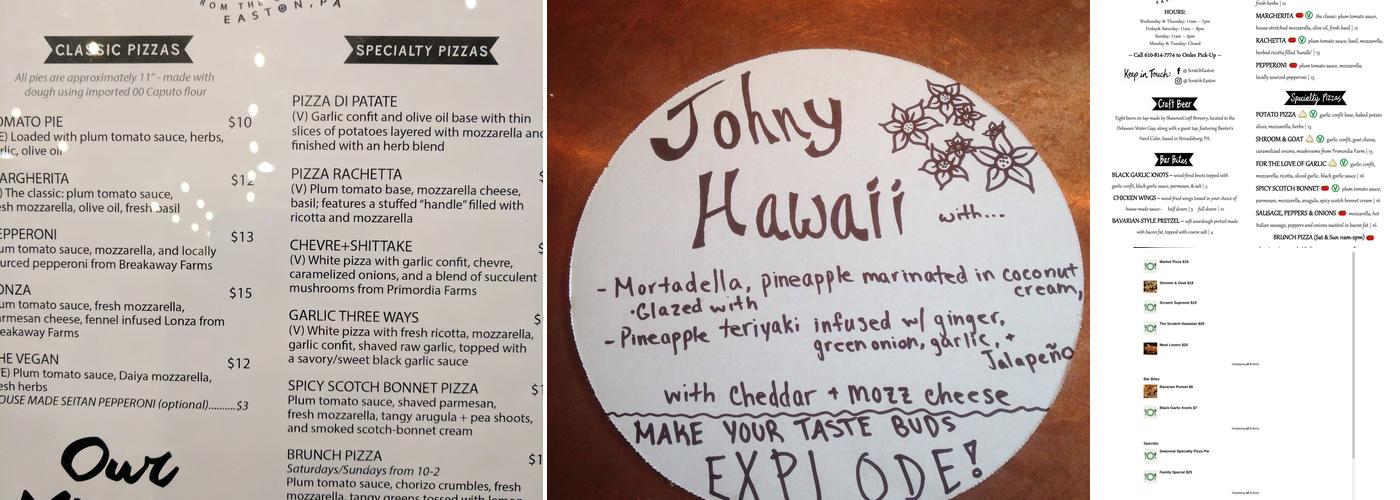 FROM THE
EASTON, PA
CLASSIC PIZZAS
All pies are approximately 11" - made with
dough using imported 00 Caputo flour
OMATO PIE $10
E) Loaded with plum tomato sauce, herbs,
rlic, olive oil
ARGHERITA $12
) The classic: plum tomato sauce,
esh mozzarella, olive oil, fresh basil
EPPERONI $13
um tomato sauce, mozzarella, and locally
urced pepperoni from Breakaway Farms
ONZA $15
um tomato sauce, fresh mozzarella,
rmesan cheese, fennel infused Lonza from
eakaway Farms
HE VEGAN $12
E) Plum tomato sauce, Daiya mozzarella,
esh herbs
OUSE MADE SEITAN PEPPERONI (optional)..........$3
Our
SPECIALTY PIZZAS
PIZZA DI PATATE
(V) Garlic confit and olive oil base with thin
slices of potatoes layered with mozzarella and
finished with an herb blend
PIZZA RACHETTA
(V) Plum tomato base, mozzarella cheese,
basil; features a stuffed "handle" filled with
ricotta and mozzarella
CHEVRE+SHITTAKE
(V) White pizza with garlic confit, chevre,
caramelized onions, and a blend of succulent
mushrooms from Primordia Farms
GARLIC THREE WAYS
(V) White pizza with fresh ricotta, mozzarella,
garlic confit, shaved raw garlic, topped with
a savory/sweet black garlic sauce
SPICY SCOTCH BONNET PIZZA
Plum tomato sauce, shaved parmesan,
fresh mozzarella, tangy arugula + pea shoots,
and smoked scotch-bonnet cream
BRUNCH PIZZA
Saturdays/Sundays from 10-2
Plum tomato sauce, chorizo crumbles, fresh
mozzarella, tangy greens tossed with lemon
Johny
Hawaii with...
- Mortadella, pineapple marinated in coconut
cream,
• Glazed with
- Pineapple teriyaki infused w/ ginger,
green onion, garlic, +
Jalapeño
with Cheddar + mozz cheese
MAKE YOUR TASTE BUDS
EXPLODE!
HOURS:
Wednesday & Thursday: 11am – 7pm
Friday & Saturday: 11am – 8pm
Sunday: 11am – 5pm
Monday & Tuesday: Closed
— Call 610-814-7774 to Order Pick-Up —
Keep in Touch: @ ScratchEaston
@ ScratchEaston
Craft Beer
Eight beers on tap made by ShawneeCraft Brewery, located in the
Delaware Water Gap, along with a guest tap, featuring Banter's
Hard Cider, based in Stroudsburg, PA.
Bar Bites
BLACK GARLIC KNOTS ~ wood-fired knots topped with
garlic confit, black garlic sauce, parmesan, & salt | 5
CHICKEN WINGS ~ wood-fired wings tossed in your choice of
house-made sauce~ half dozen | 5 full dozen | 10
BAVARIAN-STYLE PRETZEL ~ soft sourdough pretzel made
with bacon fat, topped with coarse salt | 4
fresh herbs | 12
MARGHERITA the classic: plum tomato sauce,
house-stretched mozzarella, olive oil, fresh basil | 12
RACHETTA plum tomato sauce, basil, mozzarella,
herbed ricotta filled 'handle' | 15
PEPPERONI plum tomato sauce, mozzarella,
locally sourced pepperoni | 15
Specialty Pizzas
POTATO PIZZA garlic confit base, baked potato
slices, mozzarella, herbs | 15
SHROOM & GOAT garlic confit, goat cheese,
caramelized onions, mushrooms from Primordia Farm | 15
FOR THE LOVE OF GARLIC garlic confit,
mozzarella, ricotta, sliced garlic, black garlic sauce | 16
SPICY SCOTCH BONNET plum tomato sauce,
parmesan, mozzarella, arugula, spicy scotch bonnet cream | 16
SAUSAGE, PEPPERS & ONIONS mozzarella, hot
Italian sausage, peppers and onions sautéed in bacon fat | 16
BRUNCH PIZZA (Sat & Sun 11am-2pm)
Market Pizza $18
Shroom & Goat $18
Scratch Supreme $19
The Scratch Hawaiian $20
Meat Lovers $20
Displaying all 9 items
Bar Bites
Bavarian Pretzel $6
Black Garlic Knots $7
Displaying all 2 items
Specials
Seasonal Specialty Pizza Pie
Family Special $25
Displaying all 2 items